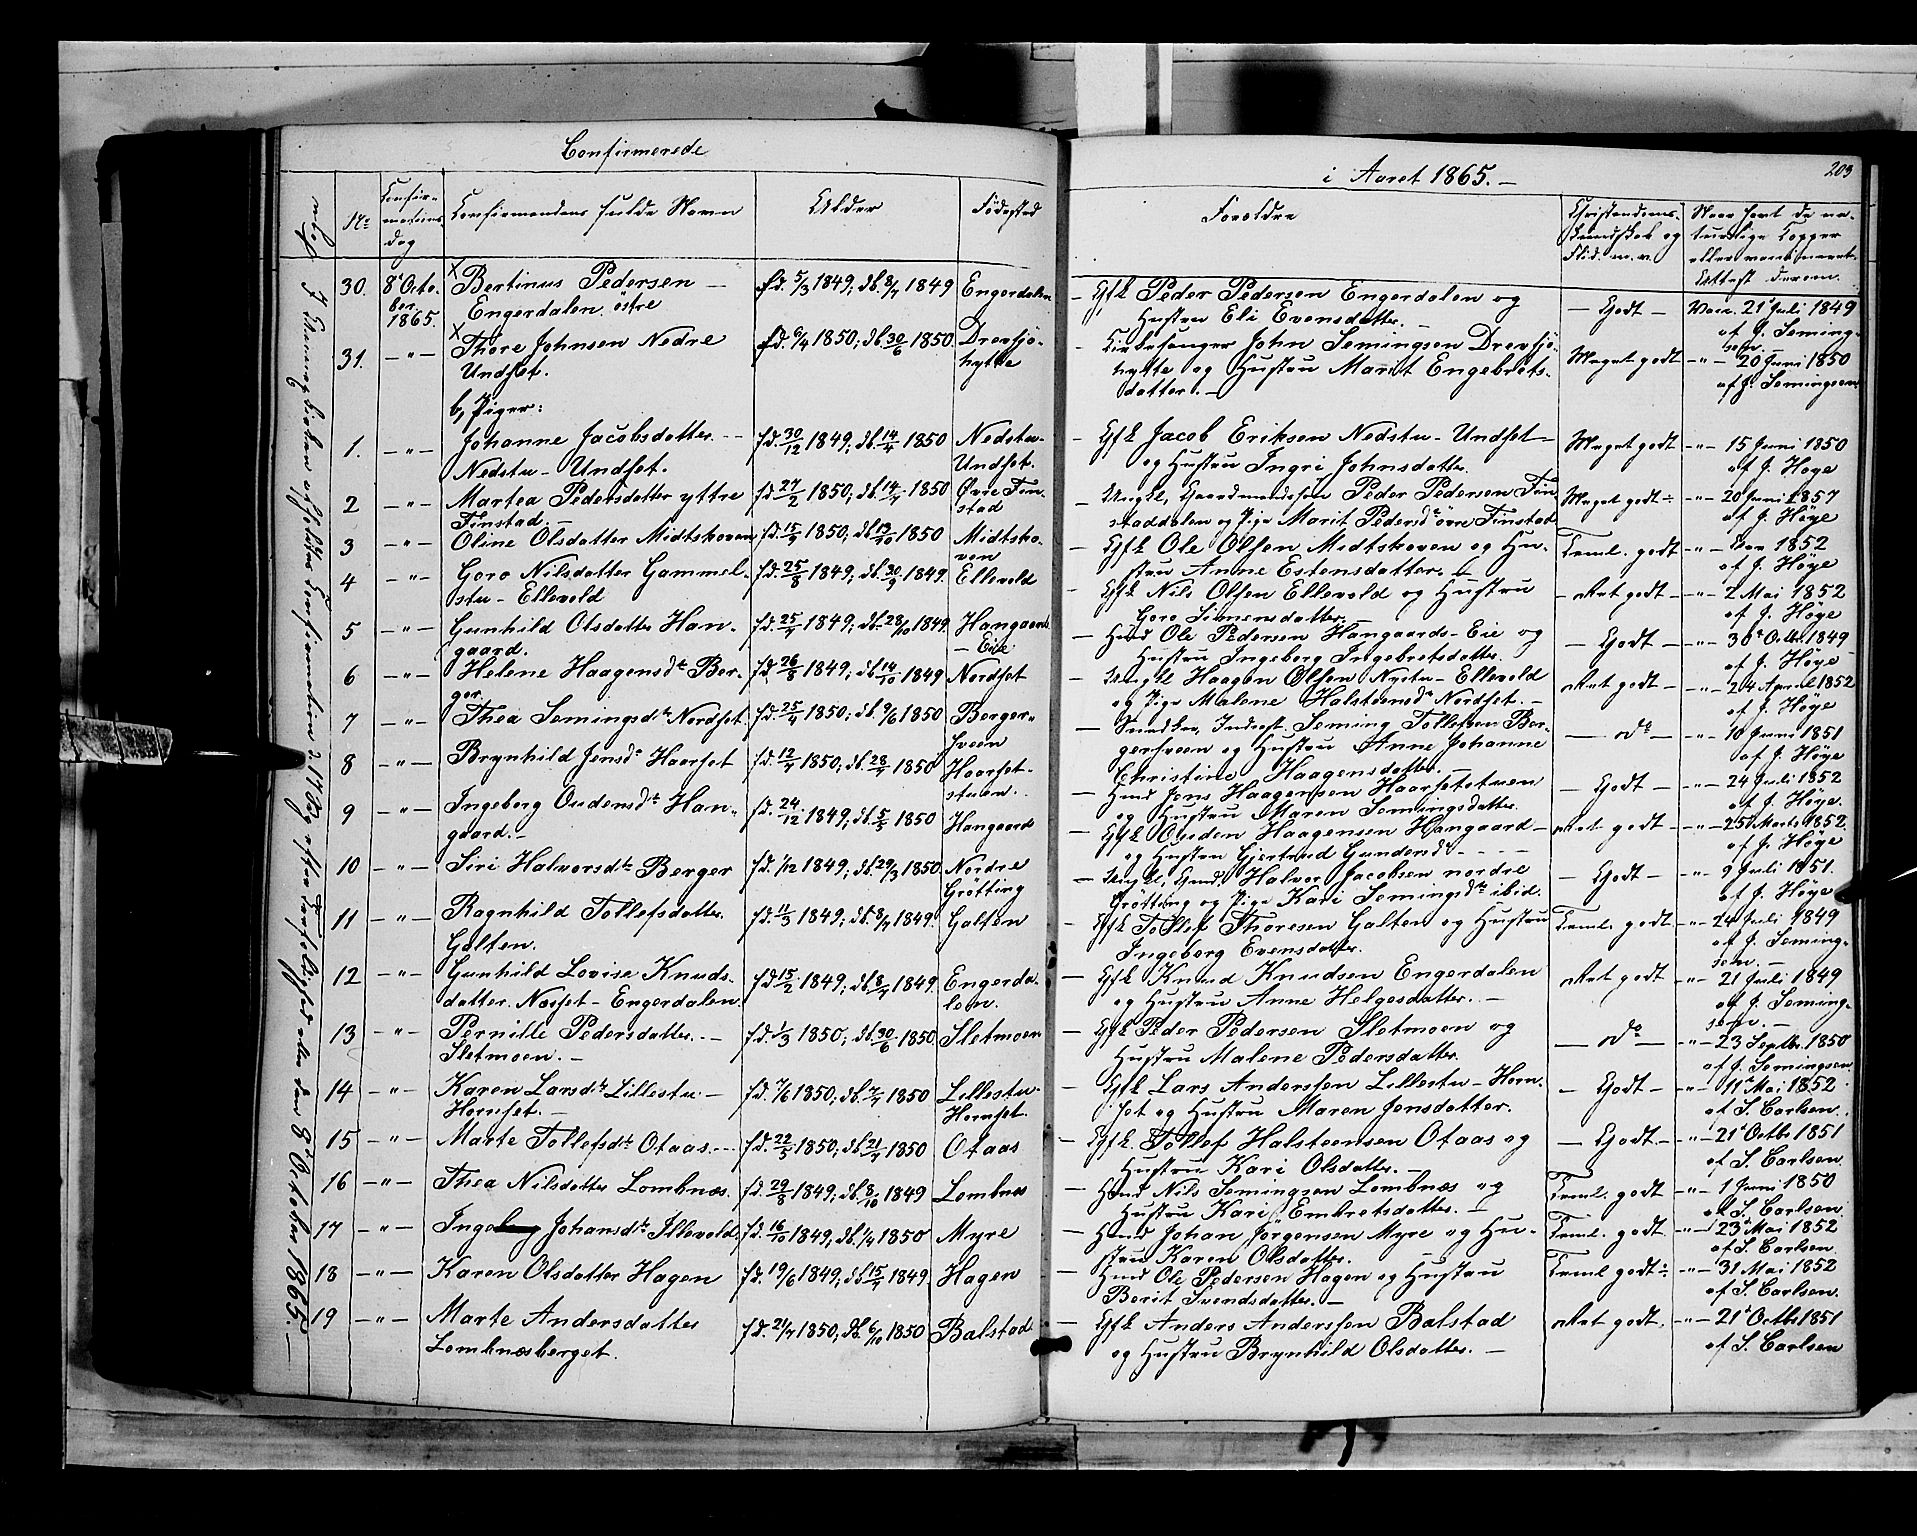 Confirmerede
i Aaret 1865.—
203
No
Confirmations dag
Confirmandens fulde Navn
Alder
Fødested
Forældre
Christendoms-
kundskab og
Flid. m. v.
Naar havt de na-
turlige Kopper
eller vaccineret.
Attest derom.
30. 8de Octo-
ber
1865.
Bertinus Pedersen —
Engerdalen östre
fd. 5/3 1849; db. 8/7 1849
Engerdalen
— Gfk Peder Pedersen Engerdalen og
Hustru Eli Evensdatter. —
— Godt —
Vacc. 21de Juli 1849
af J. Seming-
sen. —
31. —"—
Thore Johnsen Nedre
Undset.
fd. 9/4 1850; db 30/6 1850
Drevsjö-
hytte
— Kirkesanger John Semingsen Drevsjö-
hytte og Hustru Marit Engebrets-
datter. —
Meget godt
-"- 20 Juni 1850
af J. Semingsen
b, Piger:
1. —"—
Johanne Jacobsdatter. —
Nedstu-Undset.
fd. 30/12 1849; db. 14/4 1850
Nedstu-
Undset.
— Gfk Jacob Eriksen Nedstu-Undset
og Hustru Ingri Johnsdatter.
Meget godt
-"- 15 Juni 1850
af J. Höye
2 —"—
Martea Pedersdatter yttre
Finstad —
fd. 27/2 1850; db. 14/4 1850
Øvre Fin-
stad
— Ungkl, Gaardmandssön Peder Pedersen Fin-
staddalen og Pige Marit Pedersdr övre Finstad
Meget godt
-"- 20 Juni 1857
af J. Höye
3 —"—
Oline Olsdatter Midtskoven
1850
Midtsko-
ven
— Gfk Ole Olsen Midtskoven og Hu-
stru Anne Estensdatter. —
Teml. godt
1852
af J. Höye
4 —"—
Goro Nilsdatter Gammel-
stu-Ellevold
fd. 25/8 1849; db. 30/9 1849.
Ellevold
— Gfk Nils Olsen Ellevold og Hustru
Goro Simensdatter. —
— Ret godt —
-"- 2 Mai 1852
af J. Höye
5 —"—
Gunhild Olsdatter Han-
gaard.
fd. 25/7 1849; db. 28/10 1849.
Hangaards
— Eie
— Hmd Ole Pedersen Hangaards-Eie og
Hustru Ingeborg Ingebretsdatter.
— Godt —
-"- 30te Octbr 1849
af J. Höye
6 —"—
Helene Haagensdr Ber-
ger
fd. 26/8 1849; db. 14/10 1849
Nordset
— Ungkl Haagen Olsen Nystu-Ellevold
og Pige Malene Halstensdr Nordset. —
Ret godt —
-"- 24 April 1852
af J. Höye
7 —"—
Thea Semingsdr Nordset
fd. 25/4 1850; db. 9/6 1850
Berger-
sveen
— Snedker, Inderst. Seming Tollefsen Ber-
gersveen og Hustru Anne Johanne
Christine Haagensdatter. —
— do —
-"- 10 Juni 1851
af J. Höye
8 —"—
Brynhild Jensdr Haarset
fd. 12/7 1850; db. 28/7 1850
Haarset-
stuen.
— Hmd Jens Haagensen Haarsetstuen
og Hustru Maren Semingsdatter.
— Godt —
-"- 24 Juli 1852
af J. Höye.
9 —"—
Ingeborg Oudensdr Han-
gaard. —
fd. 24/12 1849; db. 5/5 1850
Hangaard
— Gfk Ouden Haagensen Hangaard —
og Hustru Gjertrud Gundersdr - - -
Ret godt —
-"- 25 Marts 1852.
af J. Höye
10 —"—
Siri Halvorsdr Berger
fd. 1/12 1849; db. 29/3 1850.
Nordre
Grötting
— Ungkl, Halvor Jacobsen nordre
Grötting og Pige Kari Semingsdr ibid.
— Godt —
-"- 9 Juli 1851.
af J. Höye
11 —"—
Ragnhild Tollefsdatter.
Galten.
fd. 11/3 1849; db. 8/7 1849.
Galten
— Gfk Tollef Thoresen Galten og Hustru
Ingeborg Evensdatter.
Teml. godt
-"- 24 Juli 1849
af J. Seming-
sen. —
12 —"—
Gunhild Lovise Knuds-
datter. Næset-Engerdalen.
fd. 15/2 1849; db. 8/7 1849.
Engerda-
len.
— Gfk Knud Knudsen Engerdalen
og Hustru Anne Helgesdatter. —
Ret godt
-"- 21 Juli 1849
af J. Seming-
sen. —
13 —"—
Pernille Pedersdatter. —
Sletmoen. —
fd. 1/3 1850; db. 30/6 1850.
Sletmoen
— Gfk Peder Pedersen Sletmoen og
Hustru Malene Pedersdatter.
— do —
-"- 23 Septbr. 1850
af J. Semingsen
14 —"—
Karen Larsdr Lillestu —
Hornset. —
fd. 7/6 1850; db. 7/7 1850
Lillestu-
Hornset.
— Gfk Lars Anderssen Lillestu-Horn-
set og Hustru Maren Jensdatter.
— Godt —
-"- 11te Mai 1852.
af S. Carlsen.
15 —"—
Marte Tollefsdr Otaas. —
fd. 22/5 1850; db. 21/7 1850
Otaas
— Gfk. Tollef Halsteensen Otaas og
Hustru Kari Olsdatter. —
— Godt —
-"- 21de Octbr 1851
af S. Carlsen.
16 —"—
Thea Nilsdatter Lombnæs.
fd. 29/8 1849; db. 8/10 1849
Lombnæs
— Hmd Nils Semingsen Lombnæs og
Hustru Kari Embretsdatter. —
Teml. godt
-"- 1 Juni 1850
af S. Carlsen.
17 —"—
Johansdr Illevold.
fd. 16/10 1849; db. 1/4 1850
Myre
— Hmd Johan Jörgensen Myre og Hu-
stru Karen Olsdatter.
Teml. godt.
-"- 23de Mai 1852
af S. Carlsen.
18 —"—
Karen Olsdatter Hagen
fd. 19/6 1849; db 15/7 1849.
Hagen
— Hmd Ole Pedersen Hagen og Hustru
Berit Svendsdatter. —
Teml godt
-"- 31 Mai 1852
af S. Carlsen.
19 —"—
Marte Andersdatter
Lombnæsberget.
fd. 21/7 1850; db. 6/10 1850
Balstad
— Gfk Anders Anderssen Balstad
og Hustru Brynhild Olsdatter. —
Ret godt.
-"- 21de Octbr 1851
af S. Carlsen